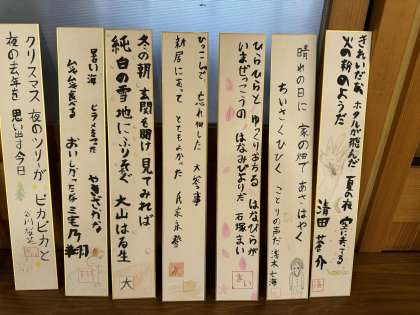 きれいだな ホタルが飛んだ 夏の夜 空に光る
火の粉のようだ 清田 蒼介
晴れの日に 家の畑で あさはやく
ちいさくひびく ことりの声だ 浅木七海
ひらひらと ゆっくりおちる はなびらが
いまぜっこうの はなみびよりだ 石塚まい
まい
ひっこしで、忘れ物した 大事な
新居にあって とてもよかった
冬の朝 玄関を開け 見てみれば
純白の雪地にふり注ぐ 大山はる生
大
暑い海
おいしかったな 三宅乃翔
クリスマス 夜のツリーが ピカピカと
夜の去年を 思い出す今日